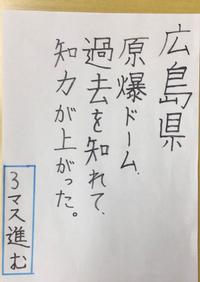 広島県
原爆ドーム
過去を知れて、
知力が上がった。
3マス進む